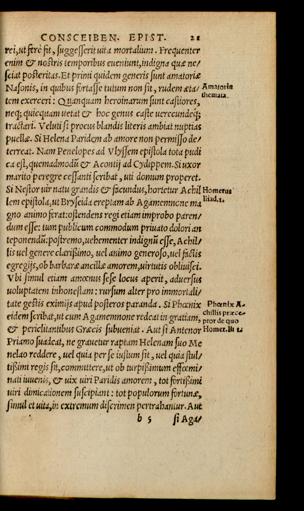 CONSCEIBEN. EPIST. 21
rei, ut ferè fit, suggesserit uita mortalium. Frequenter
enim & nostris temporibus eueniunt, indigna quæ ne/
sciat posteritas. Et primi quidem generis sunt amatoriæ
Nasonis, in quibus fortasse tutum non sit, rudem æta/
Amatoria
themata.
tem exerceri: Quanquam heroinarum sunt castiores,
neq; quicquam uetat & hoc genus castè uerecundeq;
tractari. Veluti si procus blandis literis ambiat nuptias
puellæ. Si Helena Paridem ab amore non permisso de/
terreat. Nam Penelopes ad Vlyssem epistola tota pudi
ca est, quemadmodũ & Acontij ad Cydippem. Si uxor
marito peregre cessanti scribat, uti domum properet.
Si Nestor uir natu grandis & facundus, hortetur Achil
Homerus
Iliad. 1.
lem epistola, ut Bryseida ereptam ab Agamemnone ma
gno animo ferat: ostendens regi etiam improbo paren/
dum esse: tum publicum commodum priuato dolori an
teponendũ: postremo, uehementer indignũ esse, Achil/
lis uel genere clarissimo, uel animo generoso, uel factis
egregijs, ob barbaræ ancillæ amorem, uirtutis obliuisci.
Vbi simul etiam amoris sese locus aperit, aduersus
uoluptatem inhonestam: rursum alter pro immortali/
tate gestis eximijs apud posteros paranda. Si Phœnix
Phœnix A-
chillis præce-
ptor de quo
Homer.
eidem scribat, ut cum Agamemnone redeat in gratiam,
& periclitantibus Græcis subueniat. Aut si Antenor
Priamo suadeat, ne grauetur raptam Helenam suo Me
nelao reddere, uel quia per se iustum sit, uel quia stul/
tissimi regis sit, committere, ut ob turpissimum effœmi/
nati iuuenis, & uix uiri Paridis amorem, tot fortissimi
uiri dimicationem suscipiant: tot populorum fortunæ,
simul et uita, in extremum discrimen pertrahantur. Aut
b 5 si Aga/